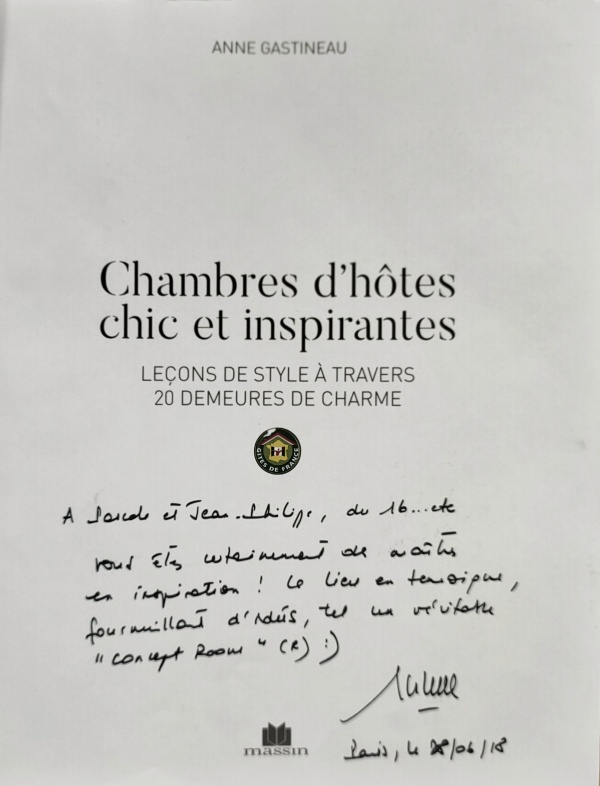 ANNE GASTINEAU
Chambres d'hôtes
chic et inspirantes
LEÇONS DE STYLE À TRAVERS
20 DEMEURES DE CHARME
GÎTES DE FRANCE
A Pascale et Jean-Philippe, du 16...etc
vous êtes certainement de maîtres
en inspiration ! Le lieu en témoigne,
fourmillant d'idées, tel un véritable
"concept Room" (R) :)
Paris, le /06/18
massin